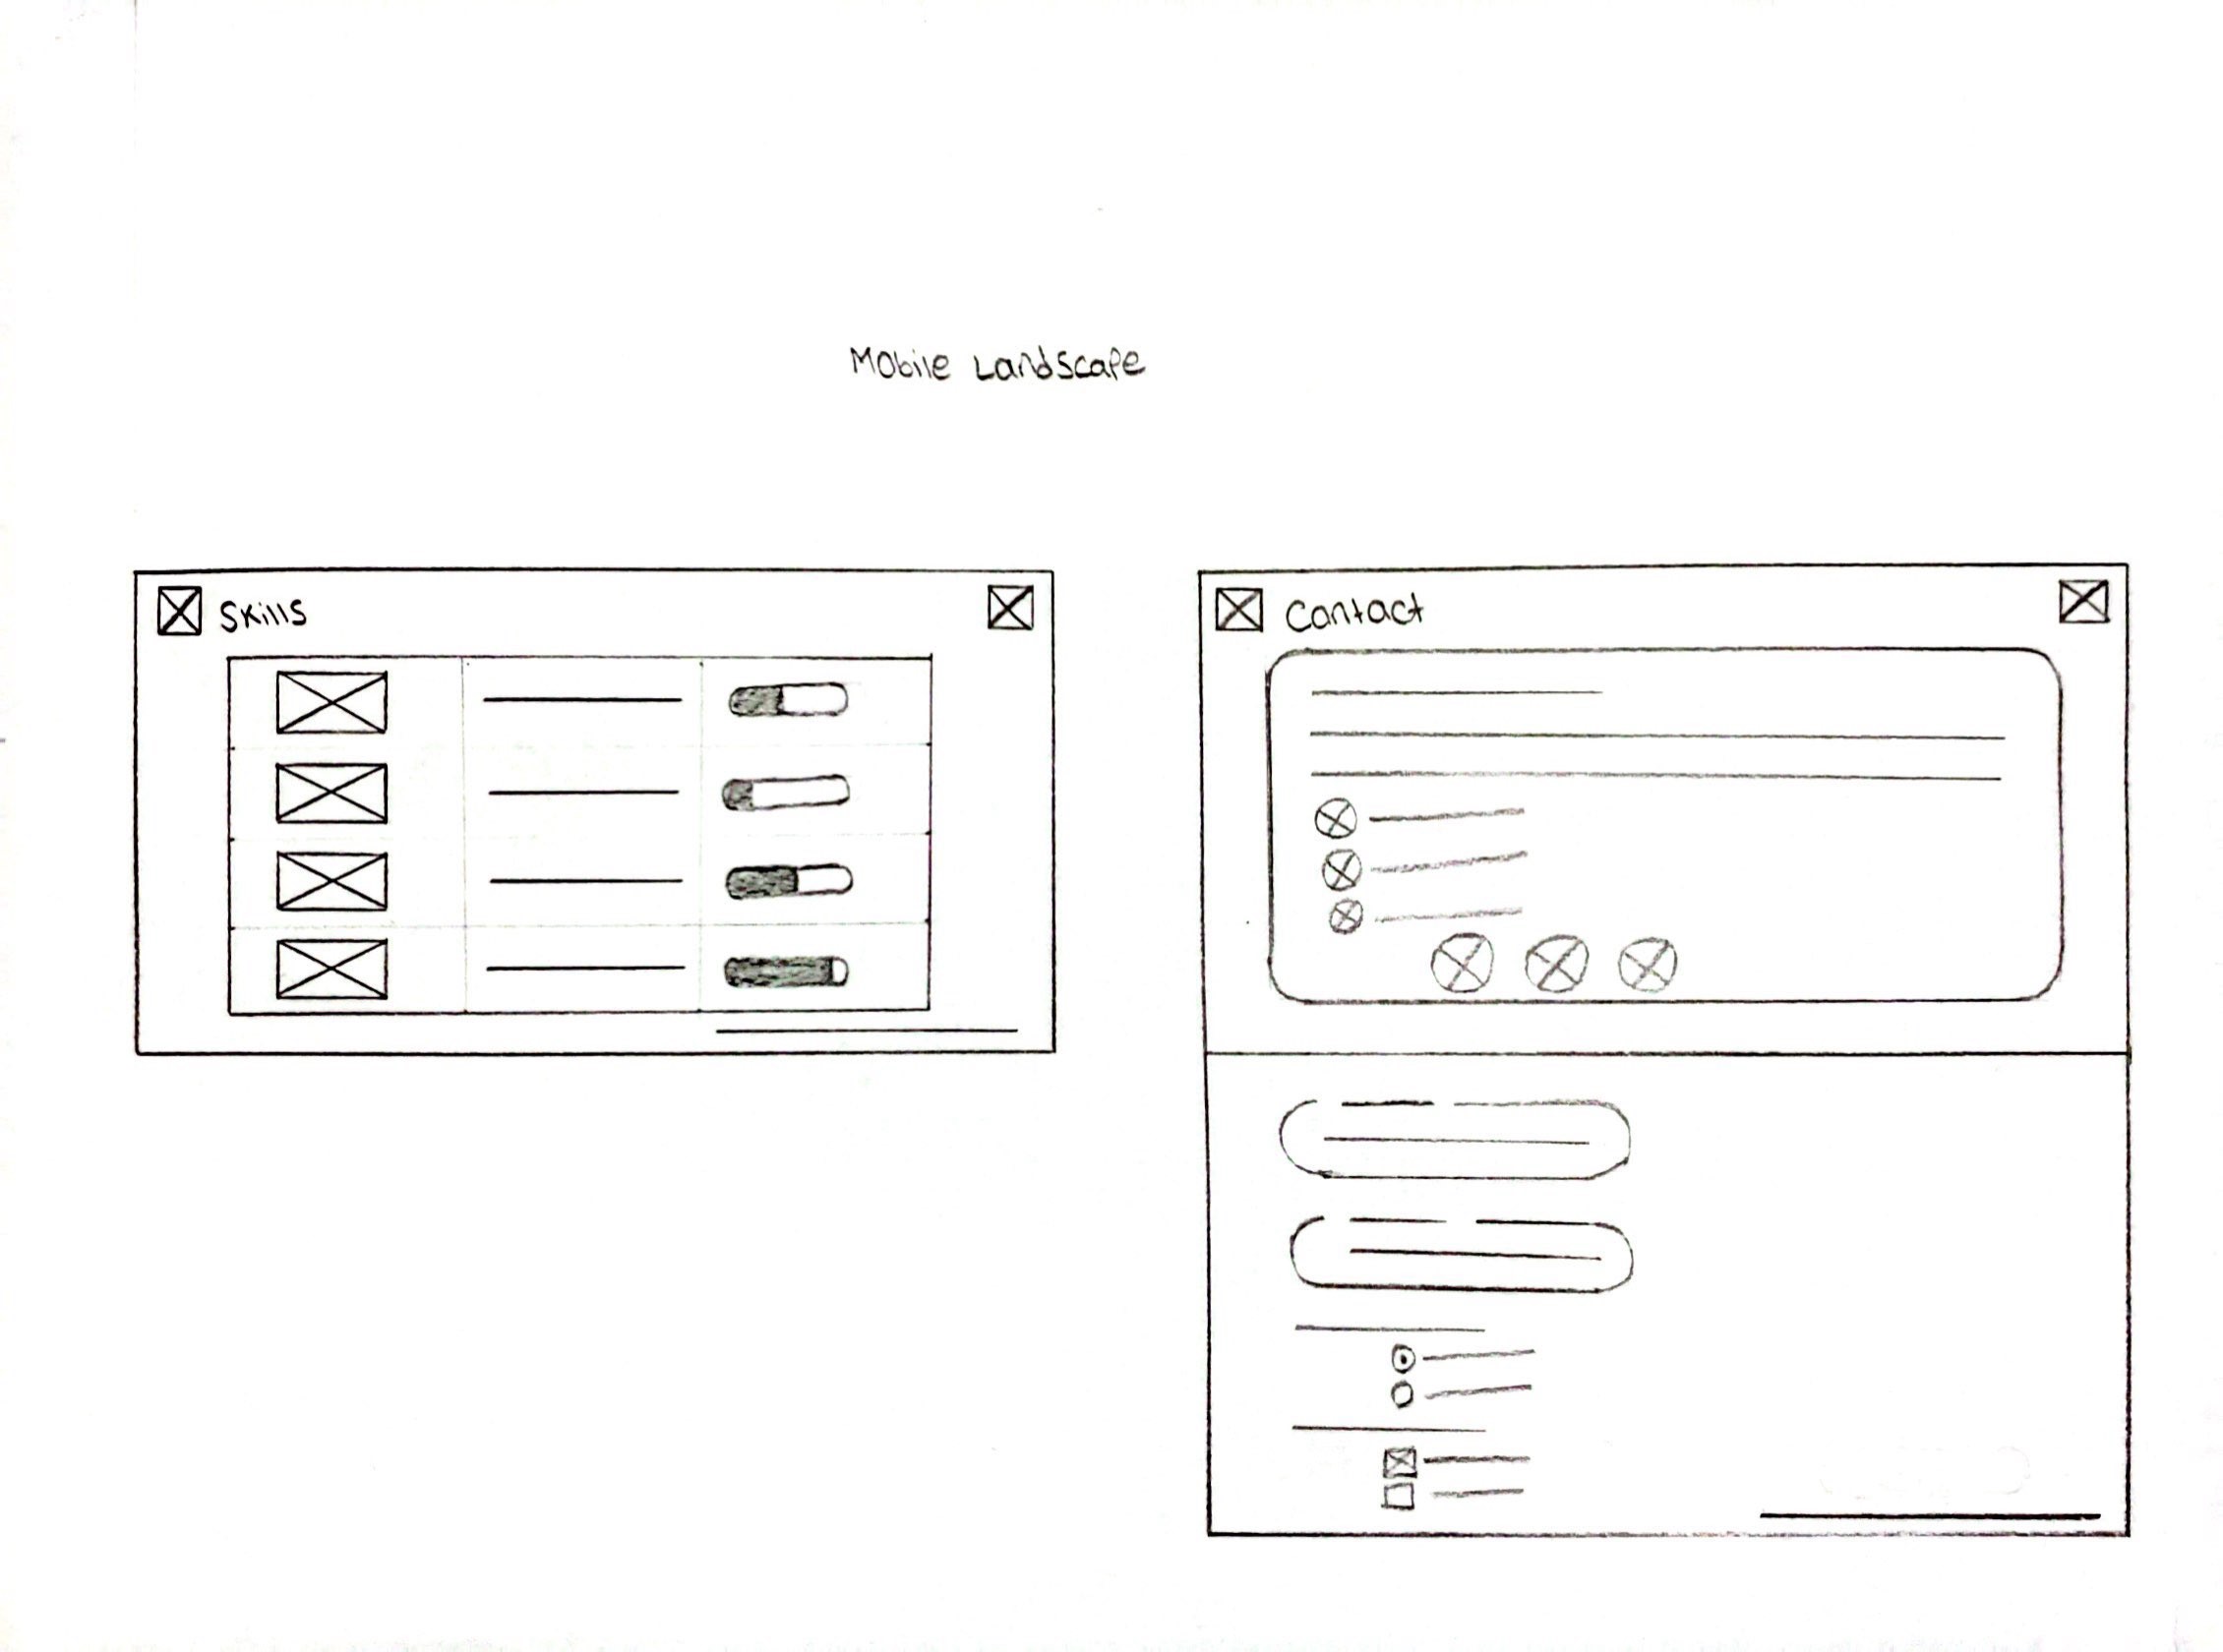 Mobile Landscape
Skills
Contact